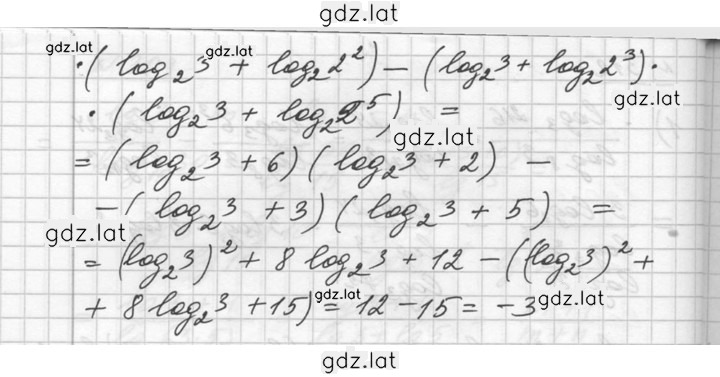 gdz.lat
gdz.lat gdz.lat
·(log₂3 + log₂2²) − (log₂3 + log₂2³)·
gdz.lat
·(log₂3 + log₂2⁵) =
gdz.lat
= (log₂3 + 6)(log₂3 + 2) −
−(log₂3 + 3)(log₂3 + 5) =
gdz.lat
= (log₂3)² + 8 log₂3 + 12 − ((log₂3)² +
+ 8 log₂3 + 15) = 12 − 15 = −3
gdz.lat gdz.lat
gdz.lat